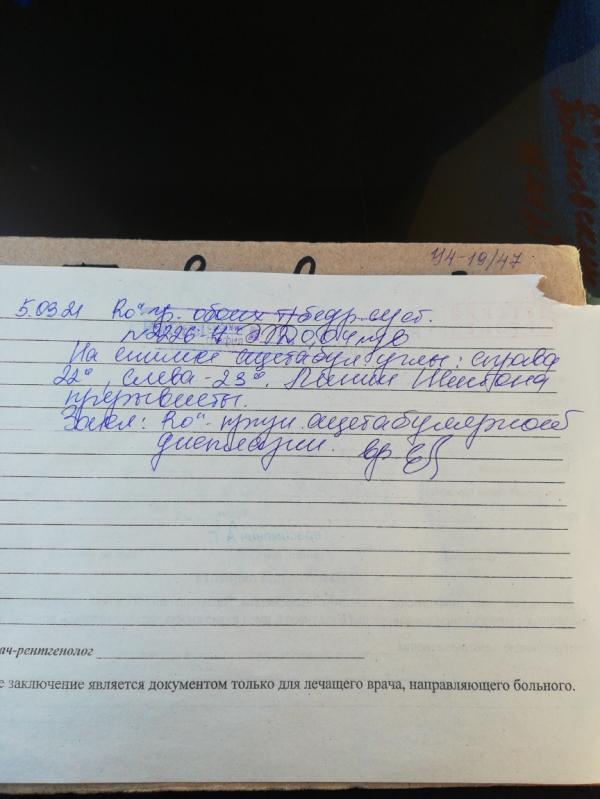 У4-19/47
5.03.21 Ro" гр. обоих т/бедр.суст.
N2226-4 ЭД 0,04 мзв
На снимке ацетабул.углы: справа
22°, слева - 23°. Линии Шентона
прерывисты.
Закл: Ro"- призн. ацетабулярной
дисплазии. вр.
ач-рентгенолог
е заключение является документом только для лечащего врача, направляющего больного.